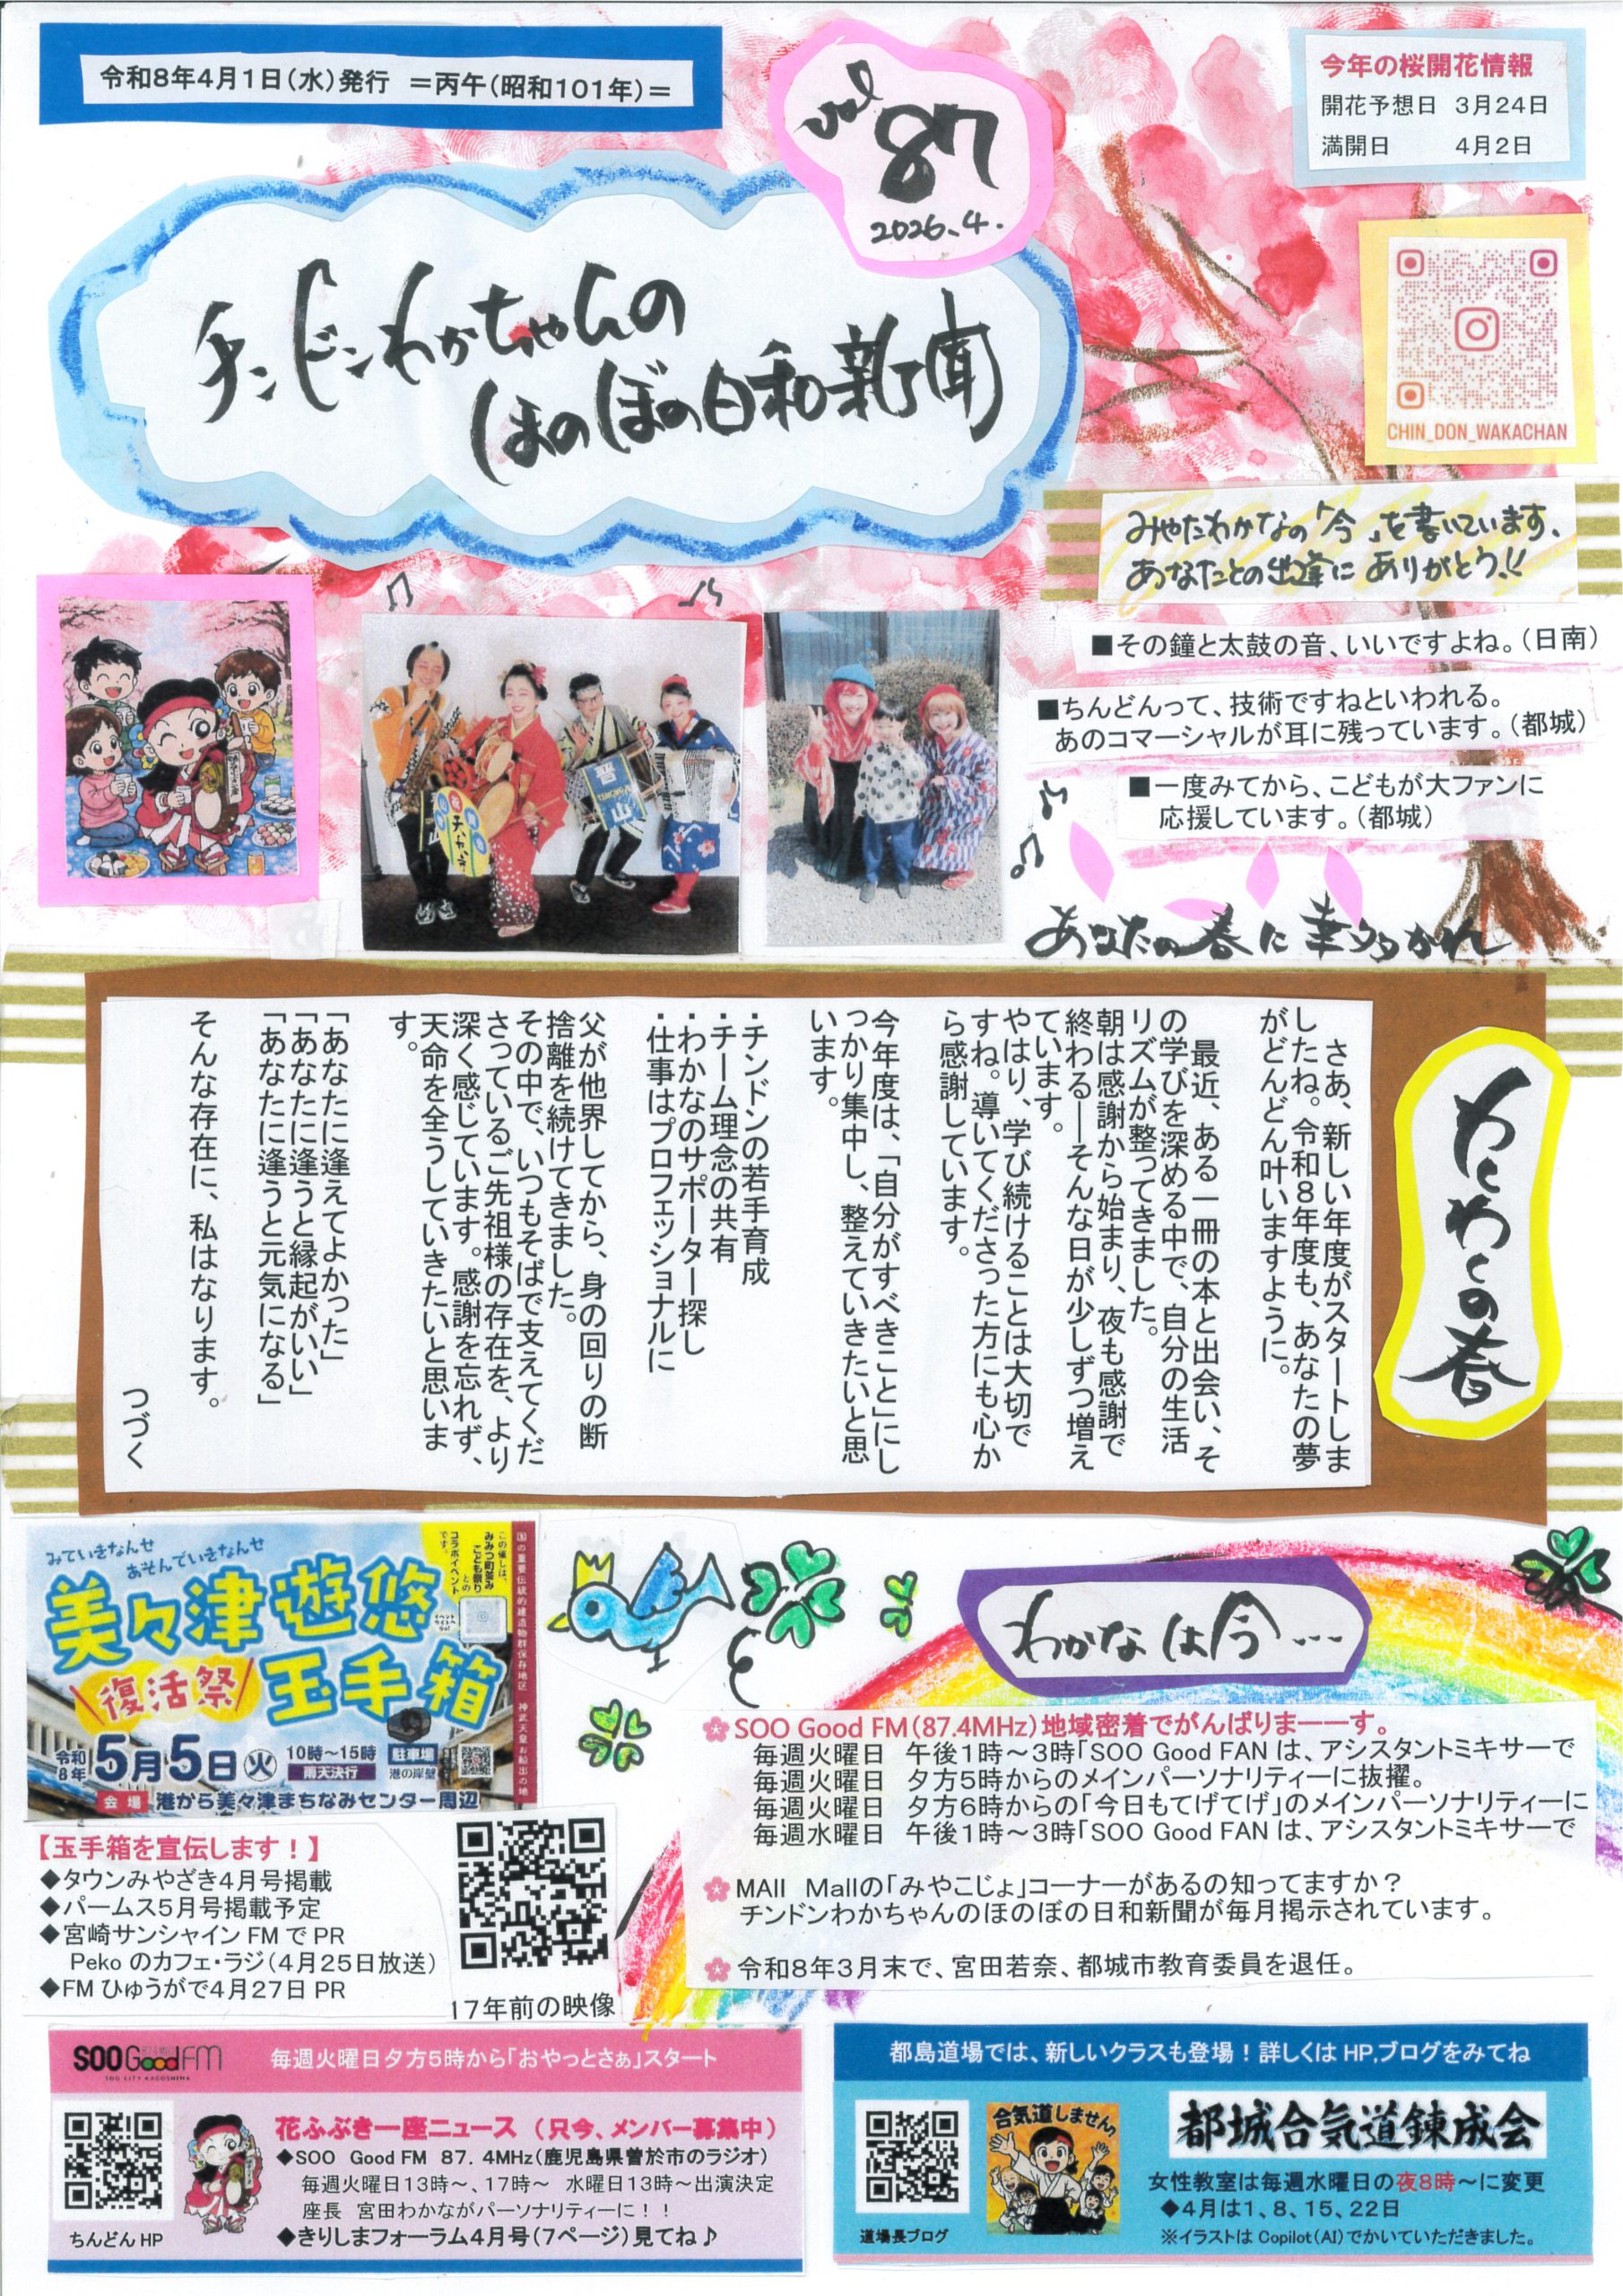 令和8年4月1日(水)発行 =丙午(昭和101年)=
vol
87
2026.4.
今年の桜開花情報
開花予想日 3月24日
満開日 4月2日
チンドンわかちゃんの
ほのぼの日和新聞
CHIN_DON_WAKACHAN
みやたわかなの「今」を書いています。
あなたとの出逢に ありがとう!!
■その鐘と太鼓の音、いいですよね。(日南)
■ちんどんって、技術ですねといわれる。
あのコマーシャルが耳に残っています。(都城)
■一度みてから、こどもが大ファンに
応援しています。(都城)
あなたの春に幸多かれ
わくわくの春
さあ、新しい年度がスタートしま
したね。令和8年度も、あなたの夢
がどんどん叶いますように。
最近、ある一冊の本と出会い、そ
の学びを深める中で、自分の生活
リズムが整ってきました。
朝は感謝から始まり、夜も感謝で
終わる―そんな日が少しずつ増え
ています。
やはり、学び続けることは大切で
すね。導いてくださった方にも心か
ら感謝しています。
今年度は、「自分がすべきこと」にし
っかり集中し、整えていきたいと思
います。
・チンドンの若手育成
・チーム理念の共有
・わかなのサポーター探し
・仕事はプロフェッショナルに
父が他界してから、身の回りの断
捨離を続けてきました。
その中で、いつもそばで支えてくだ
さっているご先祖様の存在を、より
深く感じています。感謝を忘れず、
天命を全うしていきたいと思いま
す。
「あなたに逢えてよかった」
「あなたに逢うと縁起がいい」
「あなたに逢うと元気になる」
そんな存在に、私はなります。
つづく
みていきなんせ
あそんでいきなんせ
この催しは、
みみつ町並み
こども祭り
との
コラボイベント
です。
国の重要伝統的建造物群保存地区 神武天皇お船出の地
美々津遊悠
復活祭
玉手箱
令和8年 5月5日 火 10時～15時
雨天決行
駐車場
港の岸壁
会場 港から美々津まちなみセンター周辺
【玉手箱を宣伝します!】
◆タウンみやざき4月号掲載
◆パームス5月号掲載予定
◆宮崎サンシャイン FM で PR
Peko のカフェ・ラジ(4月25日放送)
◆FM ひゅうがで4月27日 PR
17年前の映像
わかなは今…
SOO Good FM(87.4MHz)地域密着でがんばりまーーす。
毎週火曜日 午後1時～3時「SOO Good FAN は、アシスタントミキサーで
毎週火曜日 夕方5時からのメインパーソナリティーに抜擢。
毎週火曜日 夕方6時からの「今日もてげてげ」のメインパーソナリティーに
毎週水曜日 午後1時～3時「SOO Good FAN は、アシスタントミキサーで
MAll Mallの「みやこじょ」コーナーがあるの知ってますか?
チンドンわかちゃんのほのぼの日和新聞が毎月掲示されています。
令和8年3月末で、宮田若奈、都城市教育委員を退任。
SOO Good FM
SOO CITY KAGOSHIMA
毎週火曜日夕方5時から「おやっとさぁ」スタート
花ふぶき一座ニュース (只今、メンバー募集中)
◆SOO Good FM 87.4MHz(鹿児島県曽於市のラジオ)
毎週火曜日13時～、17時～ 水曜日13時～出演決定
座長 宮田わかながパーソナリティーに!!
◆きりしまフォーラム4月号(7ページ)見てね♪
ちんどん HP
都島道場では、新しいクラスも登場!詳しくは HP,ブログをみてね
合気道しません?
都城合気道錬成会
女性教室は毎週水曜日の夜8時～に変更
◆4月は1、8、15、22日
※イラストは Copilot(AI)でかいていただきました。
道場長ブログ